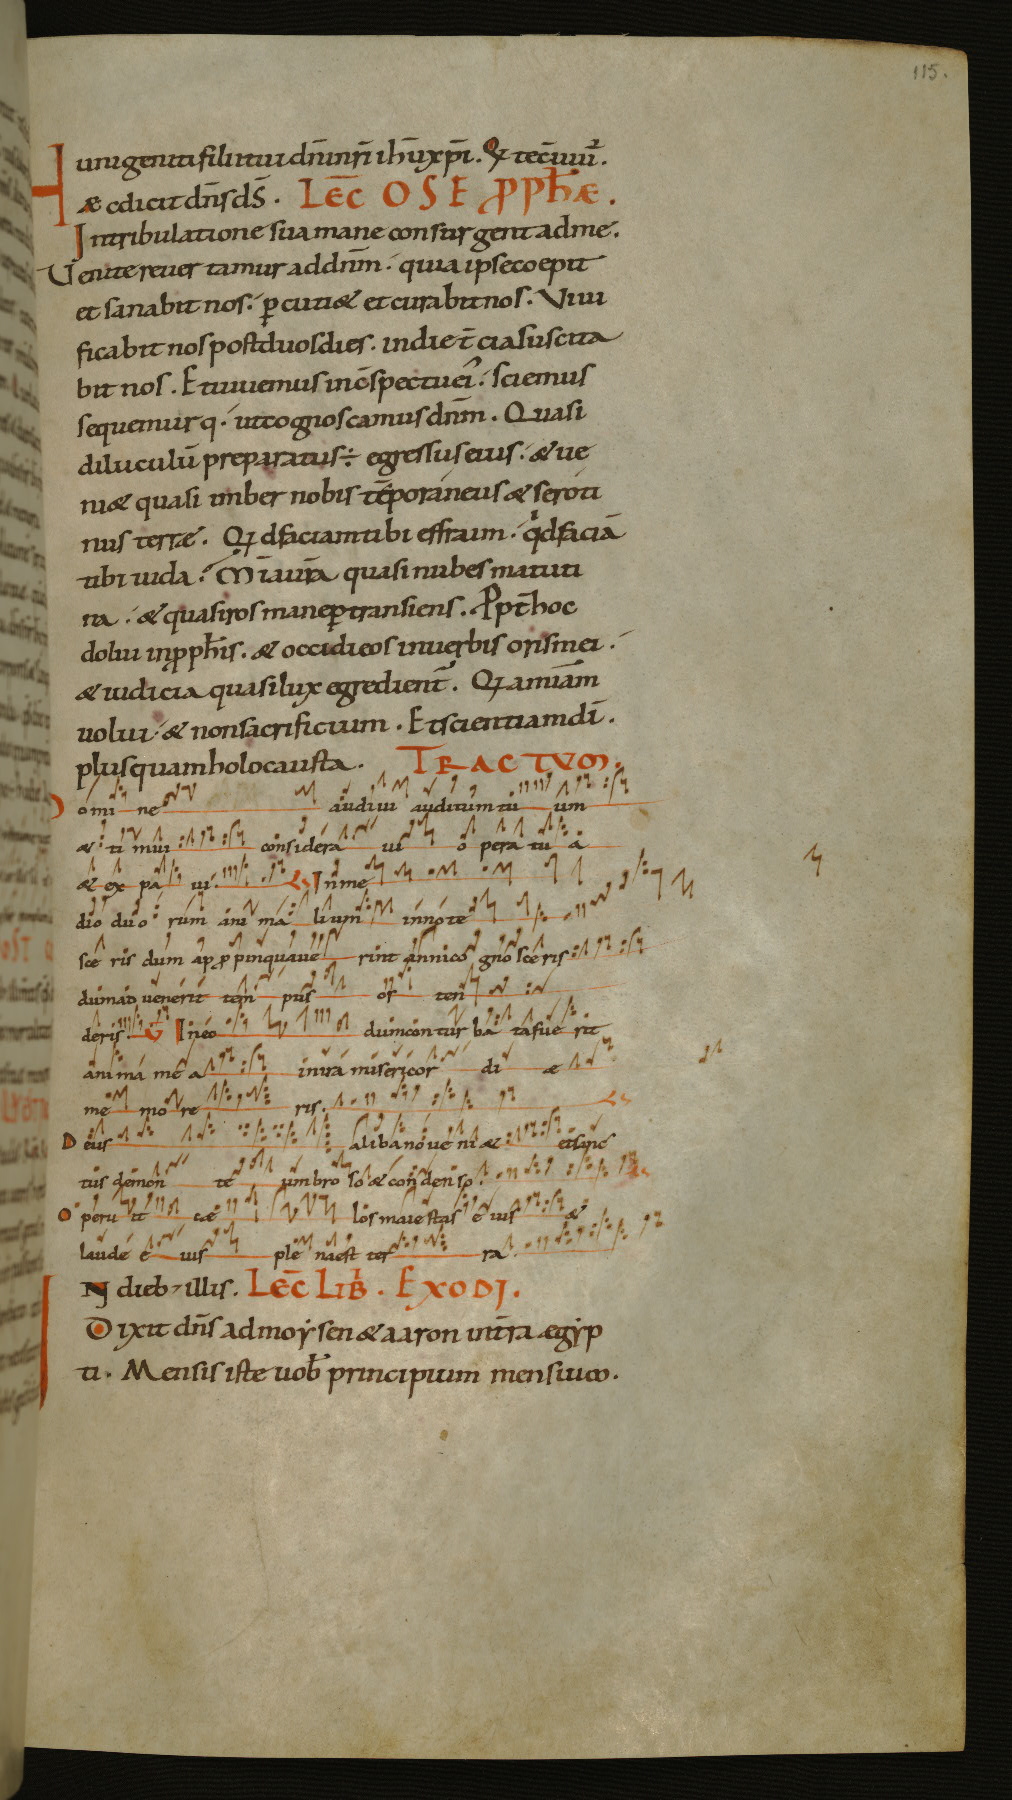 115.
unigeniti filii tui dñi nr̄i ihū xp̄i. Q̇ tecū uiuȋ.
Hæc dicit dñs d̄s. LEC̄ OSE P̱PH̄Æ.
In tribulatione sua mane consurgent ad me.
Venite reuertamur ad dñm. quia ipse coepit
et sanabit nos. p̱cutiæ et curabit nos. Viui
ficabit nos post duos dies. in die t̄cia suscita
bit nos. Et uiuemus in c̄spectu ei'. sciemus
sequemurq. ut cognoscamus dñm. Quasi
diluculū preparatus ÷ egressus eius. & ue
ni& quasi imber nobis tēporaneus & seroti
nus terræ. Qd faciam tibi effraim. qd faciā
tibi iuda. Mia ur̄a quasi nubes matuti
na. & quasi ros mane p̱transiens. Ppt̄ hoc
dolui in p̱ph̄is. & occidi eos in uerbis oris mei.
& iudicia quasi lux egredient̄. Q̱a miam̄
uolui & non sacrificium. Et scientiam dī.
plusquam holocausta. TRACTUM.
Domine audiui auditum tuum
& timui considera ui opera tua
& expaui. In me
dio duorum animalium innote
sceris dum appropinquauerint anni cognosceris
dum aduenerit tempus osten
deris. V In eo dum conturbata fuerit
anima mea in ira misericordiæ
memor eris.
Deus a libano ueni& et sanc
tus de monte umbroso & condenso.
Operuit cælos maiestas eius &
laude eius plena est terra.
IN dieb' illis. LEC̄ LIB̄. EXODI.
Dixit dñs ad moysen & aaron in tr̄a ægyp
ti. Mensis iste uob̄ principium mensiū.